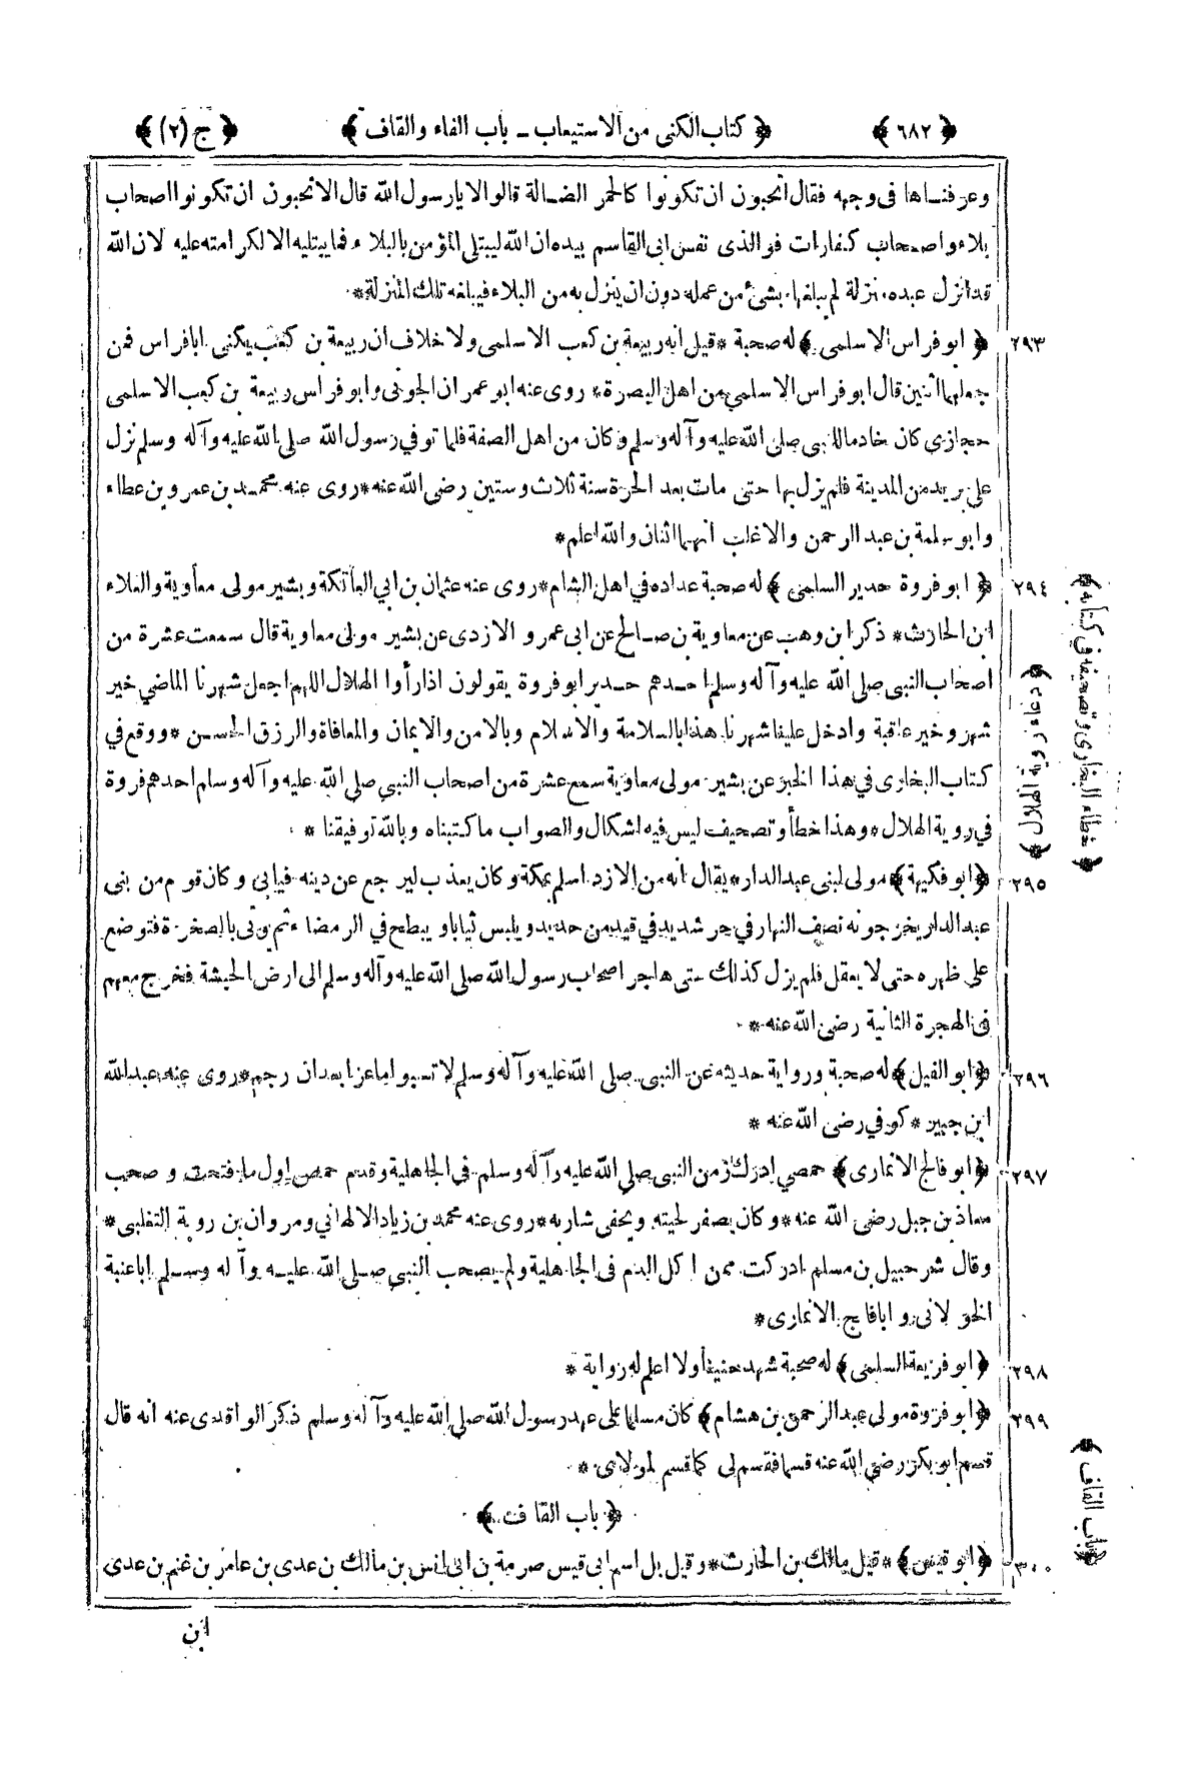 ﴿ ٦٨٢ ﴾ ﴿ كتاب الكنى من الاستيعاب - باب الفاء والقاف ﴾ ﴿ ج (٢) ﴾
وعرفناها فى وجهه فقال أتحبون ان تكونوا كالحمر الضالة قالوا لا يا رسول الله قال الا تحبون ان تكونوا اصحاب
بلاء واصحاب كفارات فوالذى نفس ابى القاسم بيده ان الله ليبتلى المؤمن بالبلاء فما يبتليه الا لكرامته عليه لان الله
قد انزل عبده منزلة لم يبلغها بشئ من عمله دون ان ينزل به من البلاء فيبلغه تلك المنزلة*
٢٩٣ ﴿ ابو فراس الاسلمى ﴾ له صحبة * قيل انه ربيعة بن كعب الاسلمى ولا خلاف ان ربيعة بن كعب يكنى ابا فراس فمن
جعلهما اثنين قال ابو فراس الاسلمي من اهل البصرة* روى عنه ابو عمران الجونى وابو فراس ربيعة بن كعب الاسلمى
حجازى كان خادما للنبى صلى الله عليه وآله وسلم وكان من اهل الصفة فلما توفي رسول الله صلى الله عليه وآله وسلم نزل
على بريد من المدينة فلم يزل بها حتى مات بعد الحرة سنة ثلاث وستين رضى الله عنه*روى عنه محمد بن عمرو بن عطاء
وابو سلمة بن عبد الرحمن والاغلب انهما اثنان والله اعلم*
٢٩٤ ﴿ ابو فروة حدير السلمى ﴾ له صحبة عداده في اهل الشام*روى عنه عثمان بن ابي العاتكة وبشير مولى معاوية والعلاء
ابن الحارث* ذكر ابن وهب عن معاوية بن صالح عن ابى عمرو الازدى عن بشير مولى معاوية قال سمعت عشرة من
اصحاب النبى صلى الله عليه وآله وسلم احدهم حدير ابو فروة يقولون اذا رأوا الهلال اللهم اجعل شهرنا الماضي خير
شهر وخير عاقبة وادخل علينا شهرنا هذا بالسلامة والاسلام وبالامن والايمان والمعافاة والرزق الحسن *ووقع في
كتاب البخارى في هذا الخبر عن بشير مولى معاوية سمع عشرة من اصحاب النبي صلى الله عليه وآله وسلم احدهم فروة
في روية الهلال*وهذا خطأ وتصحيف ليس فيه اشكال والصواب ما كتبناه وبالله توفيقنا *
﴿ دعاء روية الهلال ﴾
﴿ خطاء البخارى وتصحيفه في كتابه ﴾
٢٩٥ ﴿ابو فكيهة﴾ مولى لبنى عبد الدار* يقال انه من الازد اسلم بمكة وكان يعذب ليرجع عن دينه فيابى وكان قوم من بنى
عبد الدار يخرجونه نصف النهار في حر شديد في قيد من حديد ويلبس ثيابا ويبطح في الرمضاء ثم يؤتى بالصخرة فتوضع
على ظهره حتى لا يعقل فلم يزل كذلك حتى هاجر اصحاب رسول الله صلى الله عليه وآله وسلم الى ارض الحبشة فخرج معهم
فى الهجرة الثانية رضى الله عنه *
٢٩٦ ﴿ابو الفيل﴾ له صحبة ورواية حديثه عن النبى صلى الله عليه وآله وسلم لا تسبوا ماعزا بعد ان رجم*روى عنه عبد الله
ابن جبير * كوفي رضى الله عنه *
٢٩٧ ﴿ابو فالج الانمارى﴾ حمصي ادرك زمن النبى صلى الله عليه وآله وسلم فى الجاهلية وقدم حمص اول ما فتحت وصحب
معاذ بن جبل رضى الله عنه *وكان يصفر لحيته ويحفى شاربه *روى عنه محمد بن زياد الالهاني ومروان بن روبة التغلبى*
وقال شرحبيل بن مسلم ادركت ممن اكل الدم فى الجاهلية ولم يصحب النبي صلى الله عليه وآله وسلم ابا عنبة
الخولانى و ابا فالج الانمارى*
٢٩٨ ﴿ابو فريعة السلمى﴾ له صحبة شهد حنينا ولا اعلم له رواية *
٢٩٩ ﴿ابو فروة مولى عبد الرحمن بن هشام﴾ كان مسلما على عهد رسول الله صلى الله عليه وآله وسلم ذكر الواقدى عنه انه قال
قسم ابو بكر رضي الله عنه قسما فقسم لى كما قسم لمولاى *
﴿ باب القاف ﴾
﴿ باب القاف ﴾
٣٠٠ ﴿ابو قيس﴾ *قيل مالك بن الحارث*وقيل بل اسم ابى قيس صرمة بن ابى انس بن مالك بن عدى بن عامر بن غنم بن عدى
ابن